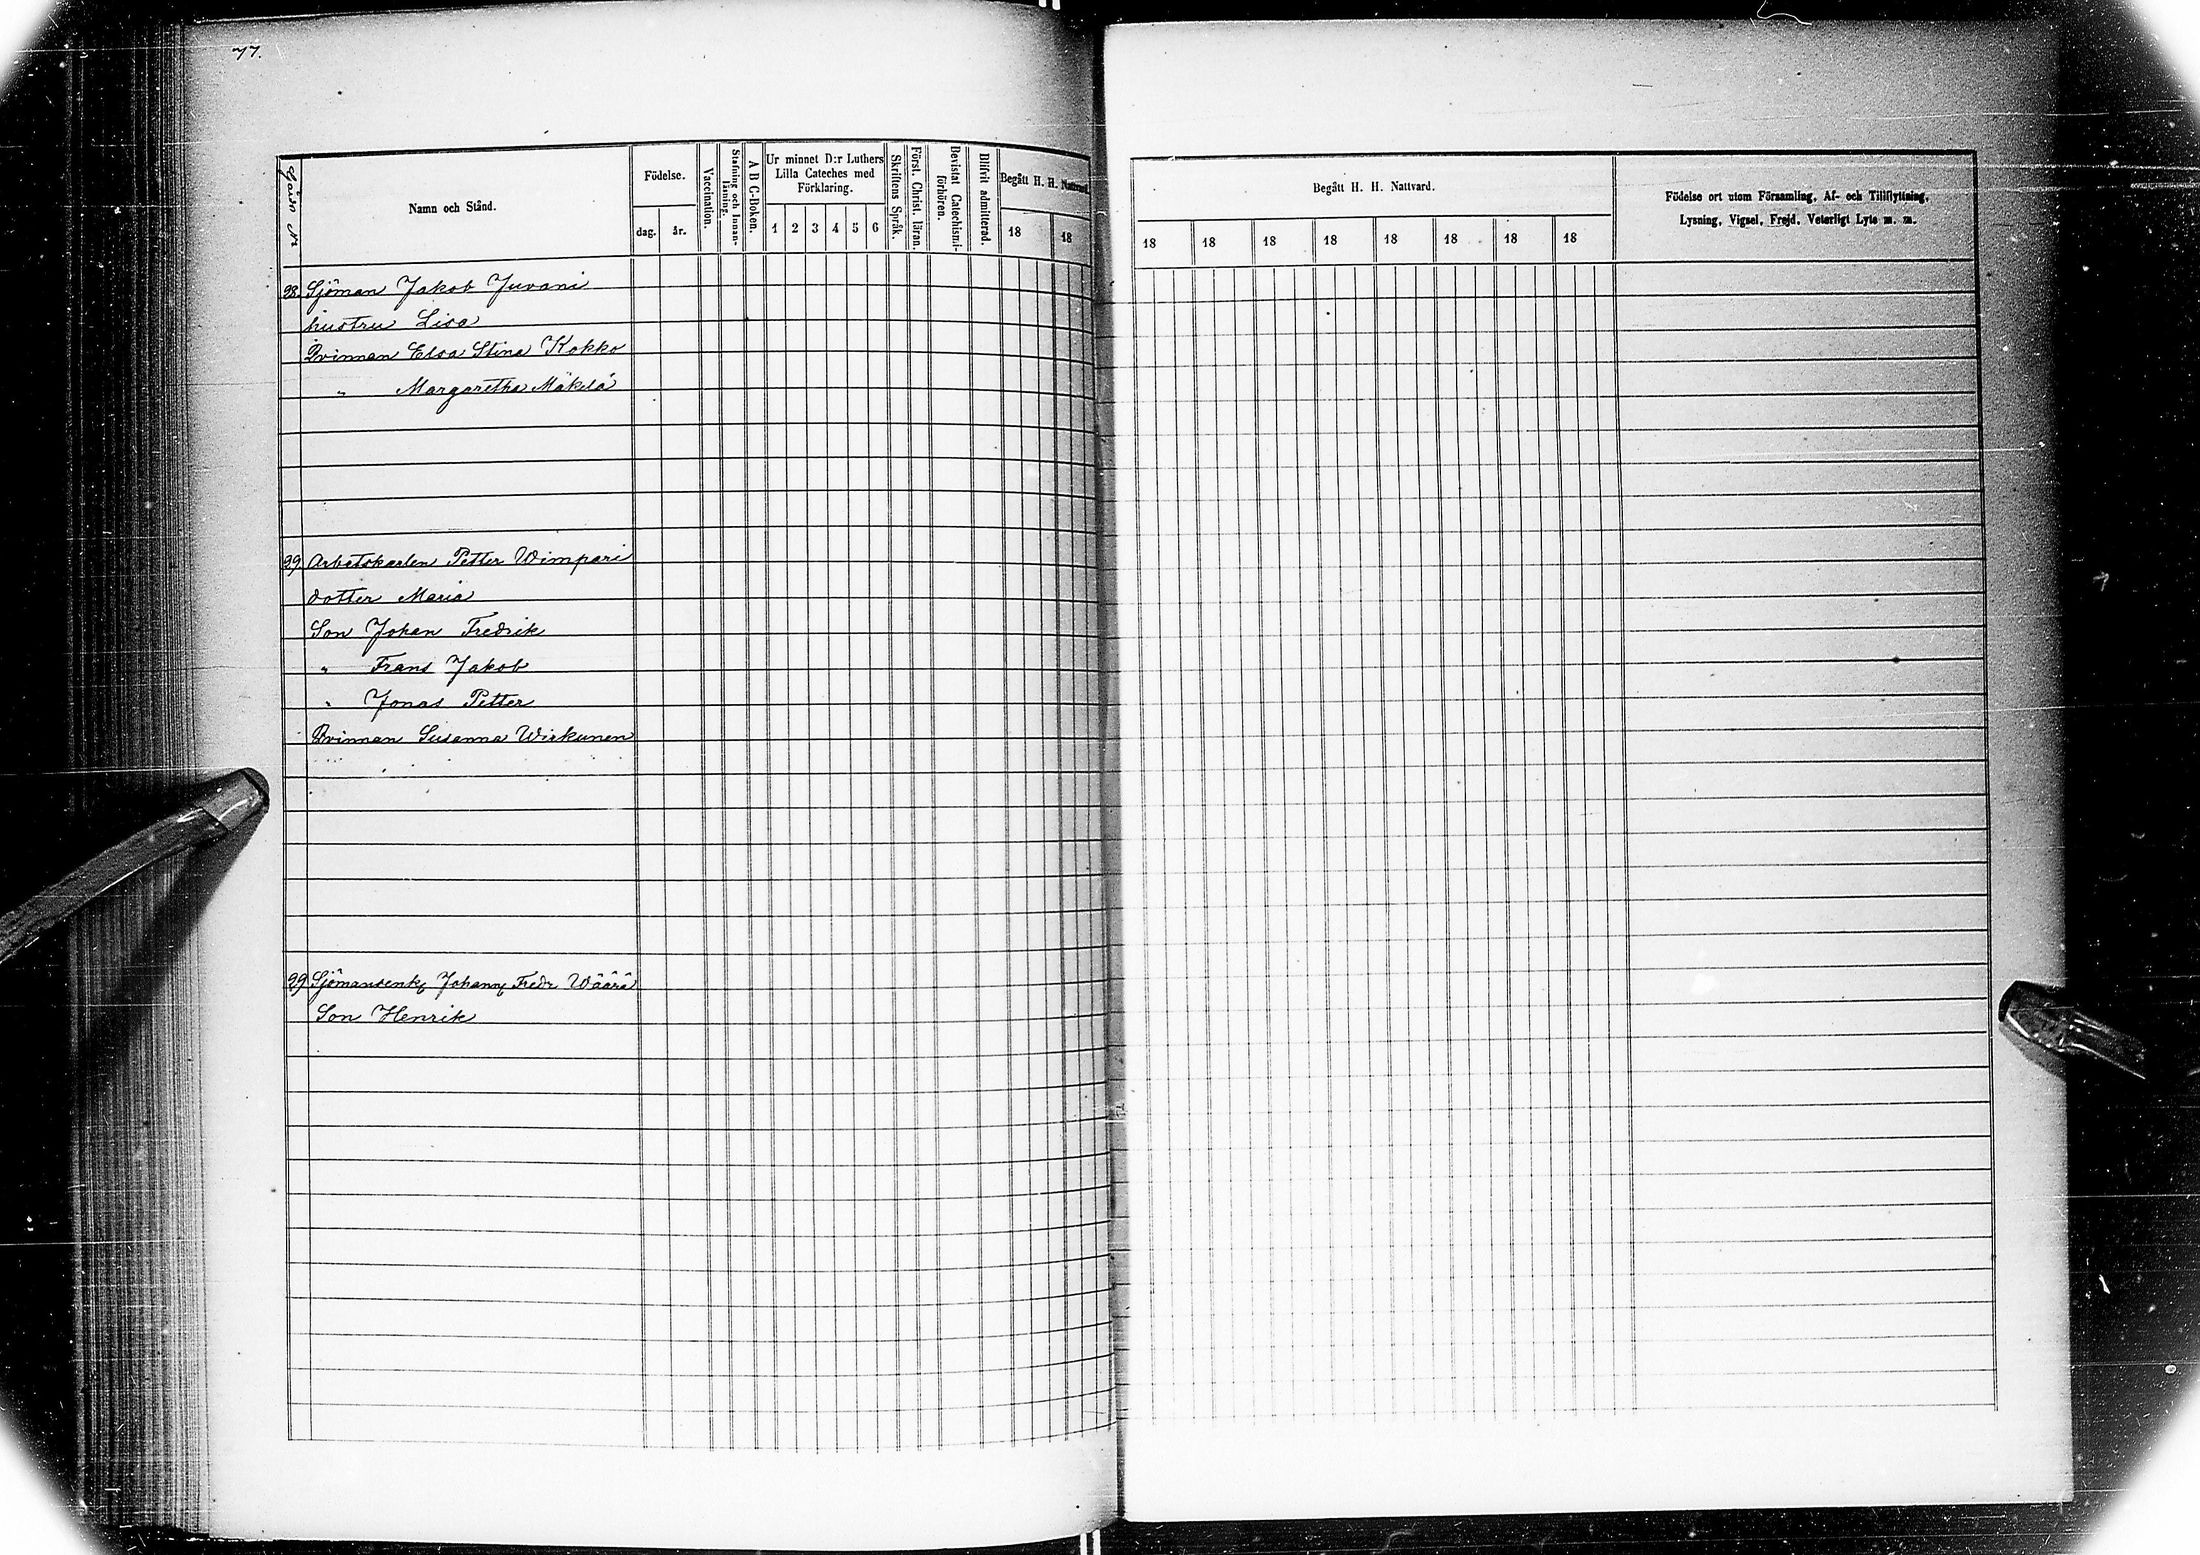 77.
Gårds Nr
Namn och Stånd.
Födelse.
dag. år.
Vaccination.
Stafning och Innan-
läsning.
A B C-Boken.
Ur minnet D:r Luthers
Lilla Cateches med
Förklaring.
1 2 3 4 5 6
Skriftens Språk.
Först. Christ. läran.
Bevistat Catechismi-
förhören.
Blifvit admitterad.
Begått H. H. Nattvard.
18 18
Begått H. H. Nattvard.
18 18 18 18 18 18 18 18
Födelse ort utom Församling, Af- och Tillflyttning,
Lysning, Vigsel, Frejd, Veterligt Lyte m. m.
98. Sjöman Jakob Juvani
hustru Lisa
Qvinnan Elsa Stina Kokko
" Margaretha Mäkelä
99. Arbetskarlen Petter Wimpari
dotter Maria
Son Johan Fredrik
" Frans Jakob
" Jonas Petter
Qvinnan Susanna Wirkunen
99 Sjömansenk. Johann Fredr Wäärä
Son Henrik